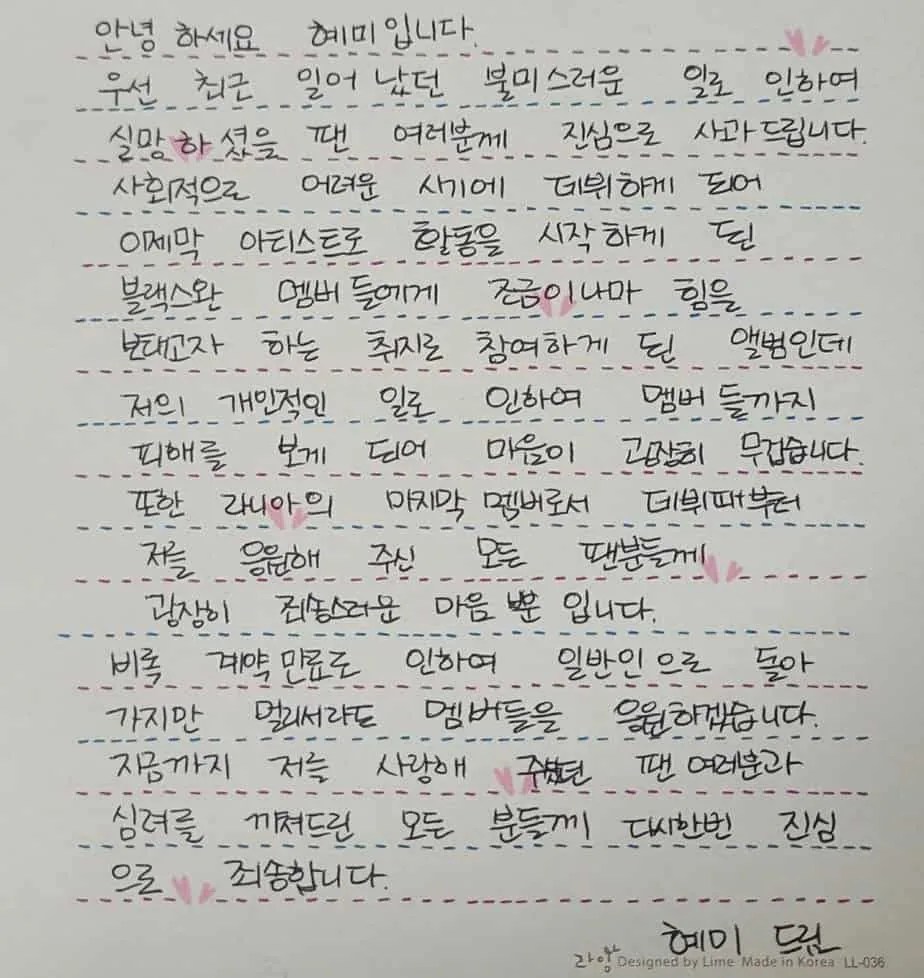 안녕 하세요 혜미입니다.
우선 최근 일어 났던 불미스러운 일로 인하여
실망하셨을 팬 여러분께 진심으로 사과드립니다.
사회적으로 어려운 시기에 데뷔하게 되어
이제막 아티스트로 활동을 시작하게 된
블랙스완 멤버들에게 조금이나마 힘을
보태고자 하는 취지로 참여하게 된 앨범인데
저의 개인적인 일로 인하여 멤버들까지
피해를 보게 되어 마음이 굉장히 무겁습니다.
또한 라니아의 마지막 멤버로서 데뷔때부터
저를 응원해 주신 모든 팬분들께
굉장히 죄송스러운 마음 뿐 입니다.
비록 계약 만료로 인하여 일반인으로 돌아
가지만 멀리서라도 멤버들을 응원하겠습니다.
지금까지 저를 사랑해 주셨던 팬 여러분과
심려를 끼쳐드린 모든 분들께 다시한번 진심
으로 죄송합니다.
혜미 드림
라임 Designed by Lime Made in Korea LL-036